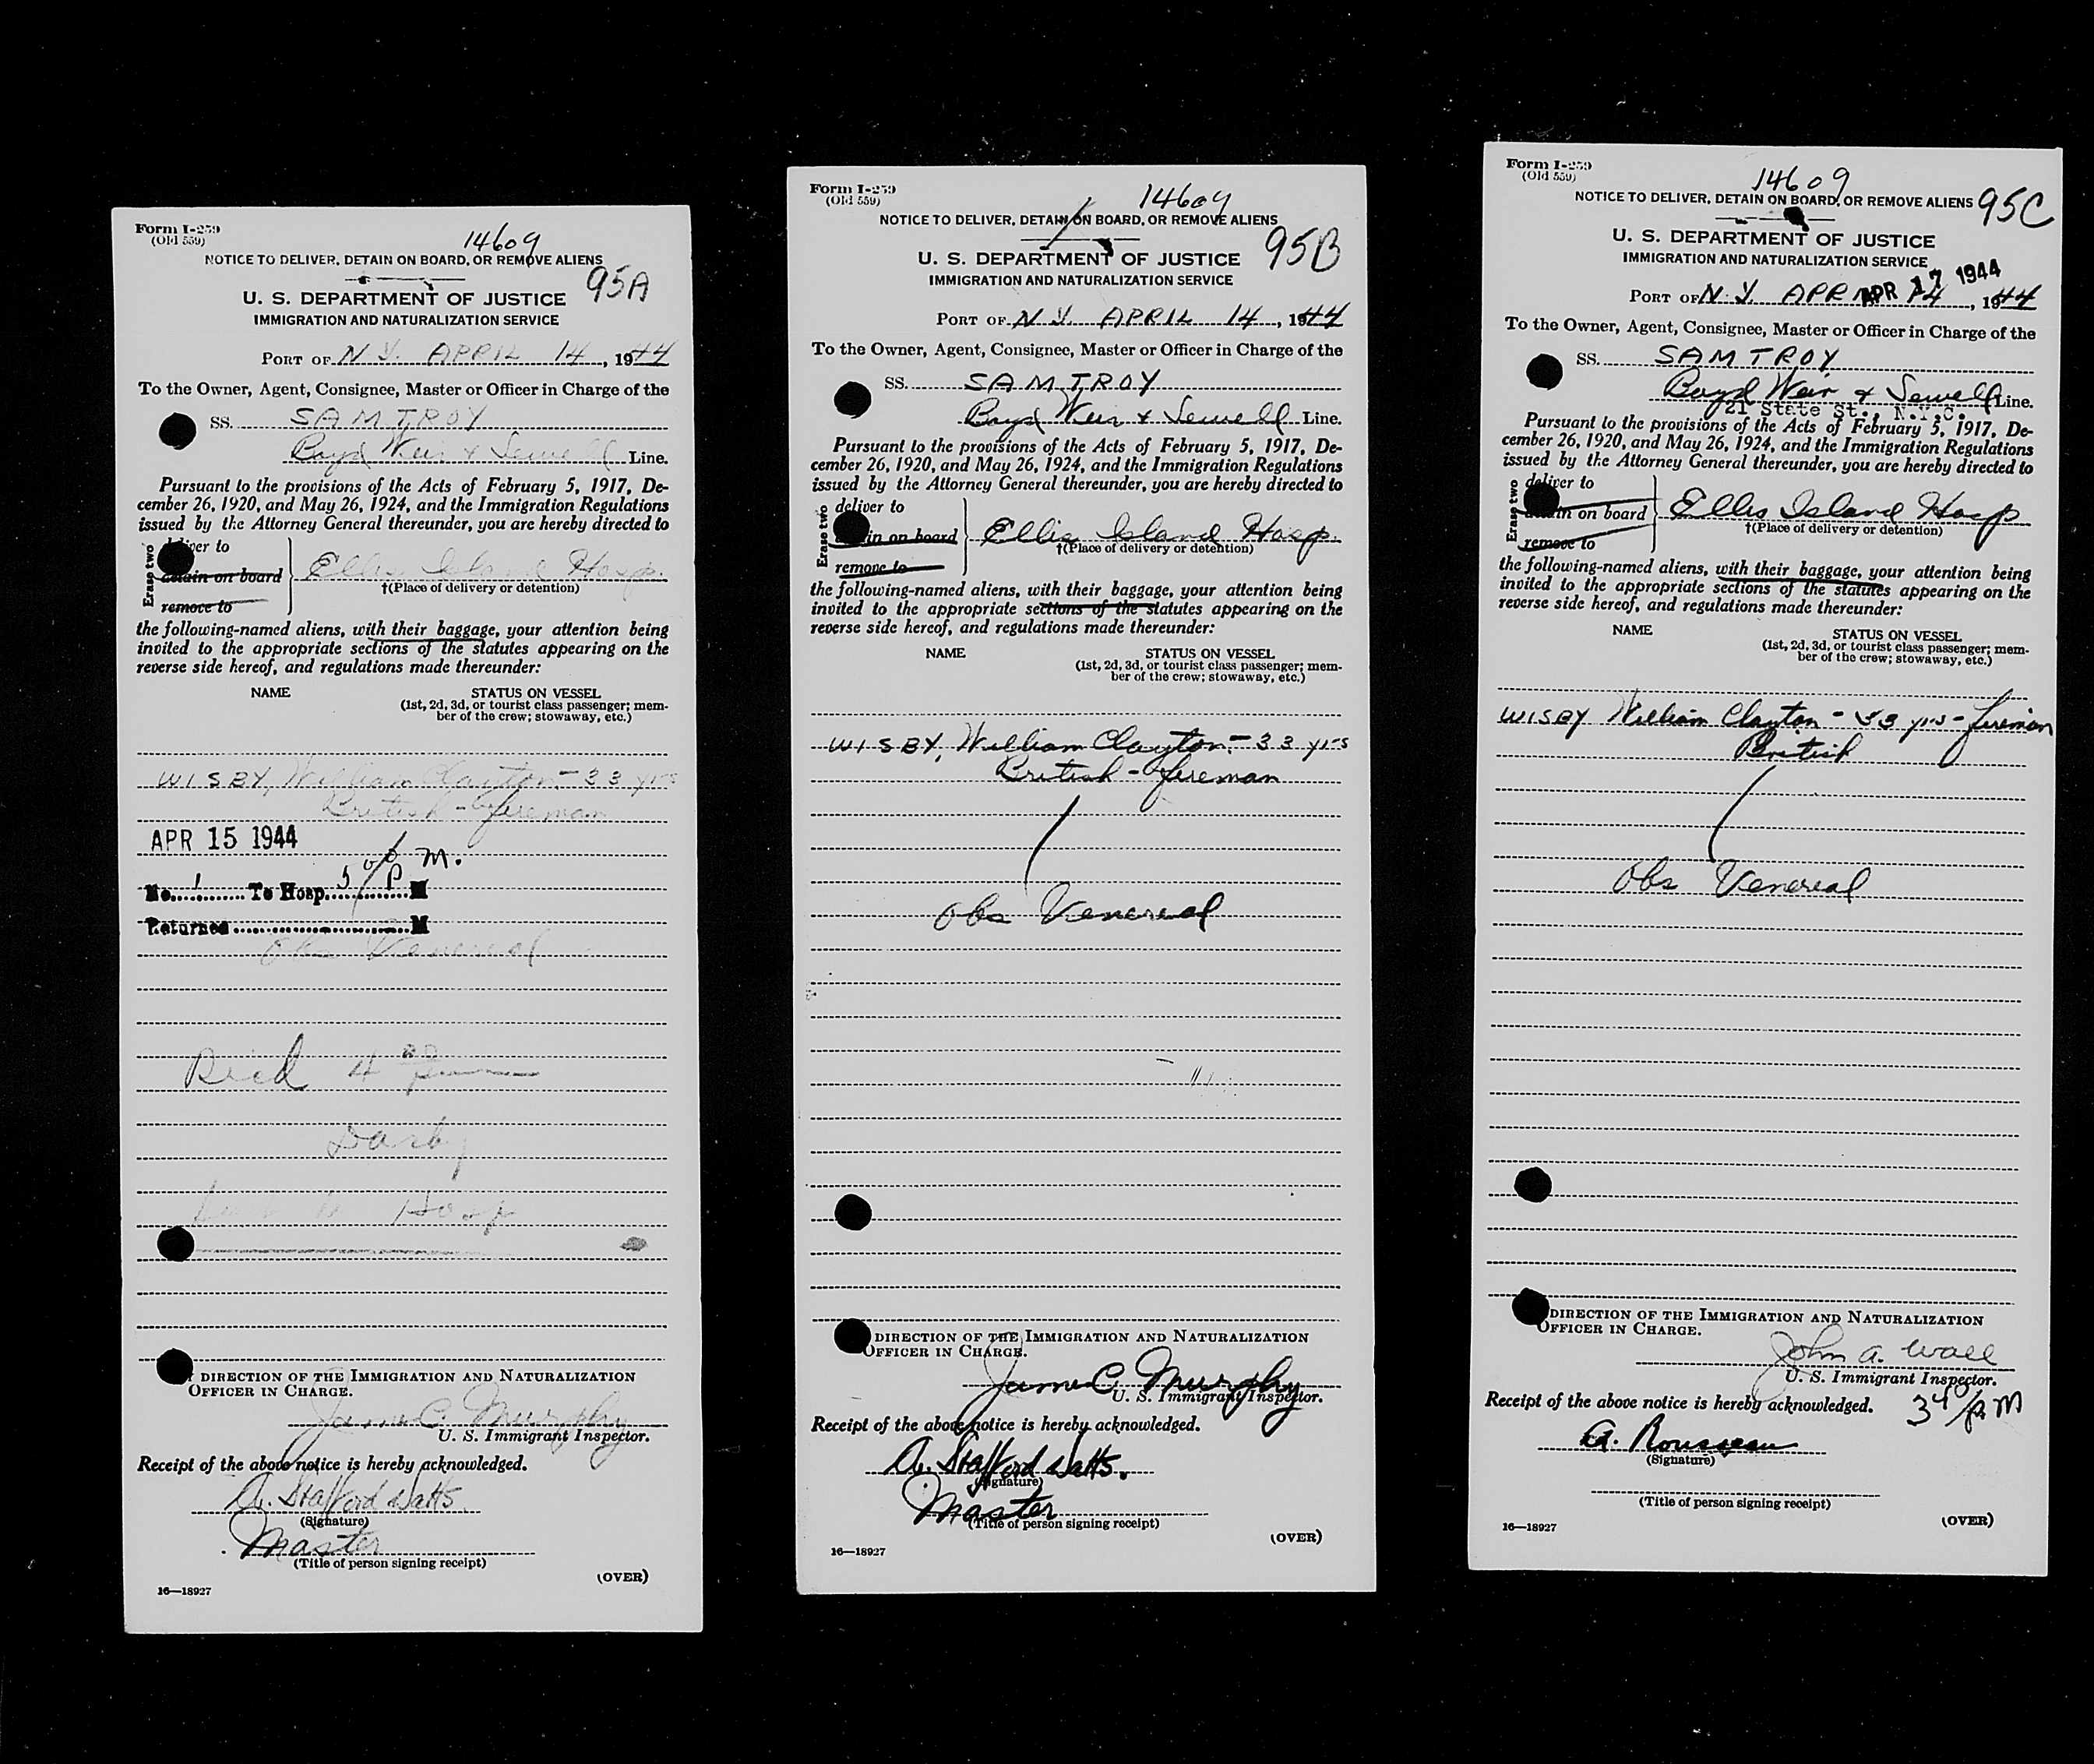 Form I-259
(Old 559)
14609
NOTICE TO DELIVER, DETAIN ON BOARD, OR REMOVE ALIENS
95A
U. S. DEPARTMENT OF JUSTICE
IMMIGRATION AND NATURALIZATION SERVICE
PORT OF N.Y. APRIL 14, 1944
To the Owner, Agent, Consignee, Master or Officer in Charge of the
SS. SAMTROY
Boyd Weir & Sewell Line.
Pursuant to the provisions of the Acts of February 5, 1917, De-
cember 26, 1920, and May 26, 1924, and the Immigration Regulations
issued by the Attorney General thereunder, you are hereby directed to
Erase two
deliver to
detain on board
remove to
Ellis Island Hosp.
†(Place of delivery or detention)
the following-named aliens, with their baggage, your attention being
invited to the appropriate sections of the statutes appearing on the
reverse side hereof, and regulations made thereunder:
NAME STATUS ON VESSEL
(1st, 2d, 3d, or tourist class passenger; mem-
ber of the crew; stowaway, etc.)
WISBY, William Clayton - 33 yrs
British - fireman
APR 15 1944
No. 1 To Hosp. 5 P M
Returned M
Obs Venereal
4
Darby
Hosp
DIRECTION OF THE IMMIGRATION AND NATURALIZATION
OFFICER IN CHARGE.
James C. Murphy
U. S. Immigrant Inspector.
Receipt of the above notice is hereby acknowledged.
A. Stafford Watts
(Signature)
Master
(Title of person signing receipt)
16—18927
(OVER)
Form I-259
(Old 559)
14609
NOTICE TO DELIVER, DETAIN ON BOARD, OR REMOVE ALIENS
95B
U. S. DEPARTMENT OF JUSTICE
IMMIGRATION AND NATURALIZATION SERVICE
PORT OF N.Y. APRIL 14, 1944
To the Owner, Agent, Consignee, Master or Officer in Charge of the
SS. SAMTROY
Boyd Weir & Sewell Line.
Pursuant to the provisions of the Acts of February 5, 1917, De-
cember 26, 1920, and May 26, 1924, and the Immigration Regulations
issued by the Attorney General thereunder, you are hereby directed to
Erase two
deliver to
detain on board
remove to
Ellis Island Hosp.
†(Place of delivery or detention)
the following-named aliens, with their baggage, your attention being
invited to the appropriate sections of the statutes appearing on the
reverse side hereof, and regulations made thereunder:
NAME STATUS ON VESSEL
(1st, 2d, 3d, or tourist class passenger; mem-
ber of the crew; stowaway, etc.)
WISBY, William Clayton - 33 yrs
British - fireman
Obs Venereal
DIRECTION OF THE IMMIGRATION AND NATURALIZATION
OFFICER IN CHARGE.
James C. Murphy
U. S. Immigrant Inspector.
Receipt of the above notice is hereby acknowledged.
A. Stafford Watts.
(Signature)
Master
(Title of person signing receipt)
16—18927
(OVER)
Form I-259
(Old 559)
14609
NOTICE TO DELIVER, DETAIN ON BOARD, OR REMOVE ALIENS
95C
U. S. DEPARTMENT OF JUSTICE
IMMIGRATION AND NATURALIZATION SERVICE
APR 17 1944
PORT OF N.Y. APR 14, 1944
To the Owner, Agent, Consignee, Master or Officer in Charge of the
SS. SAMTROY
Boyd Weir & Sewell Line.
21 State St., N.Y.C.
Pursuant to the provisions of the Acts of February 5, 1917, De-
cember 26, 1920, and May 26, 1924, and the Immigration Regulations
issued by the Attorney General thereunder, you are hereby directed to
Erase two
deliver to
detain on board
remove to
Ellis Island Hosp
†(Place of delivery or detention)
the following-named aliens, with their baggage, your attention being
invited to the appropriate sections of the statutes appearing on the
reverse side hereof, and regulations made thereunder:
NAME STATUS ON VESSEL
(1st, 2d, 3d, or tourist class passenger; mem-
ber of the crew; stowaway, etc.)
WISBY William Clayton - 33 yrs - fireman
British
Obs Venereal
DIRECTION OF THE IMMIGRATION AND NATURALIZATION
OFFICER IN CHARGE.
John A. Wall
U. S. Immigrant Inspector.
Receipt of the above notice is hereby acknowledged.
A. Rousseau
(Signature)
(Title of person signing receipt)
16—18927
(OVER)